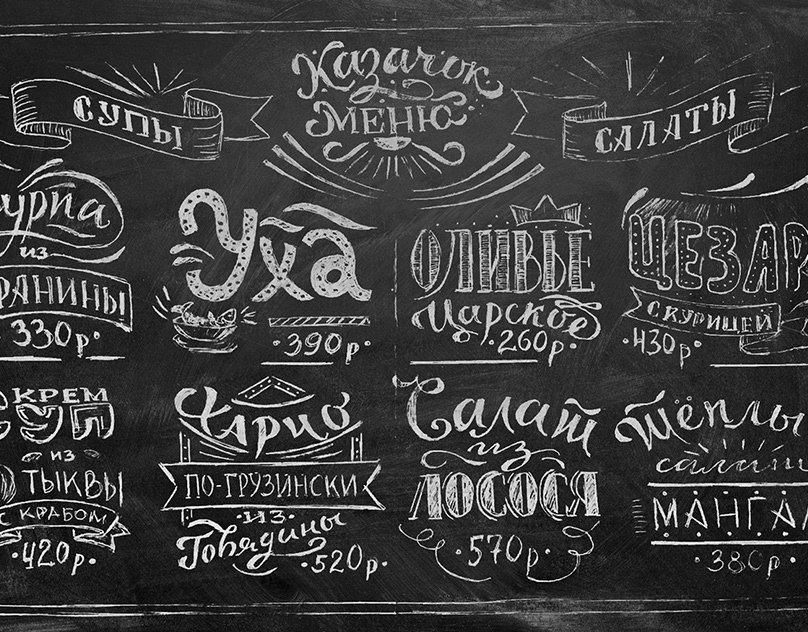 Казачок
МЕНЮ
СУПЫ
САЛАТЫ
урпа
из
РАНИНЫ
330р.
Уха
390р
КРЕМ
СУП
ИЗ
ТЫКВЫ
С КРАБОМ
420р
Харчо
ПО-ГРУЗИНСКИ
ИЗ
Говядины
520р
ОЛИВЬЕ
Царское
260р
ЦЕЗАР
С КУРИЦЕЙ
430р
Салат
из
ЛОСОСЯ
570р
Тёплы
салат
МАНГАЛ
380р